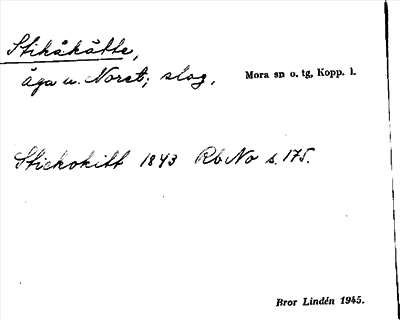 Stikåkätte,
äga u. Noret; slog,
Mora sn o. tg, Kopp. l.
Stickokitt 1843 Rb No s. 175.
Bror Lindén 1945.